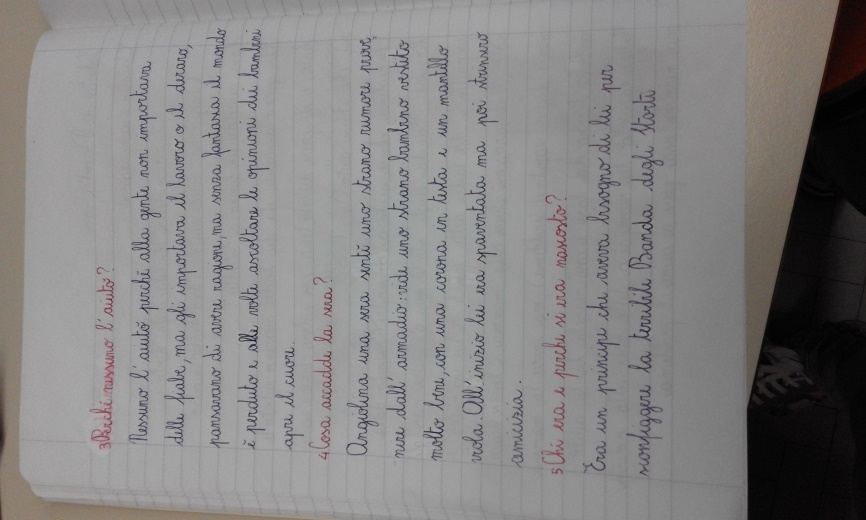 3 Perché nessuno l'aiutò?
Nessuno l'aiutò perché alla gente non importava
delle fiabe, ma gli importava il lavoro o il denaro,
pensavano di avere ragione, ma senza fantasia il mondo
è perduto e alle volte ascoltare le opinioni dei bambini
apre il cuore.
4 Cosa accadde la sera?
Angiolina una sera sentì uno strano rumore prove
nire dall'armadio: vide uno strano bambino vestito
molto bene, con una corona in testa e un mantello
viola. All'inizio lei era spaventata ma poi strinsero
amicizia.
5 Chi era e perché si era nascosto?
Era un principe che aveva bisogno di lei per
sconfiggere la terribile Banda degli Storti